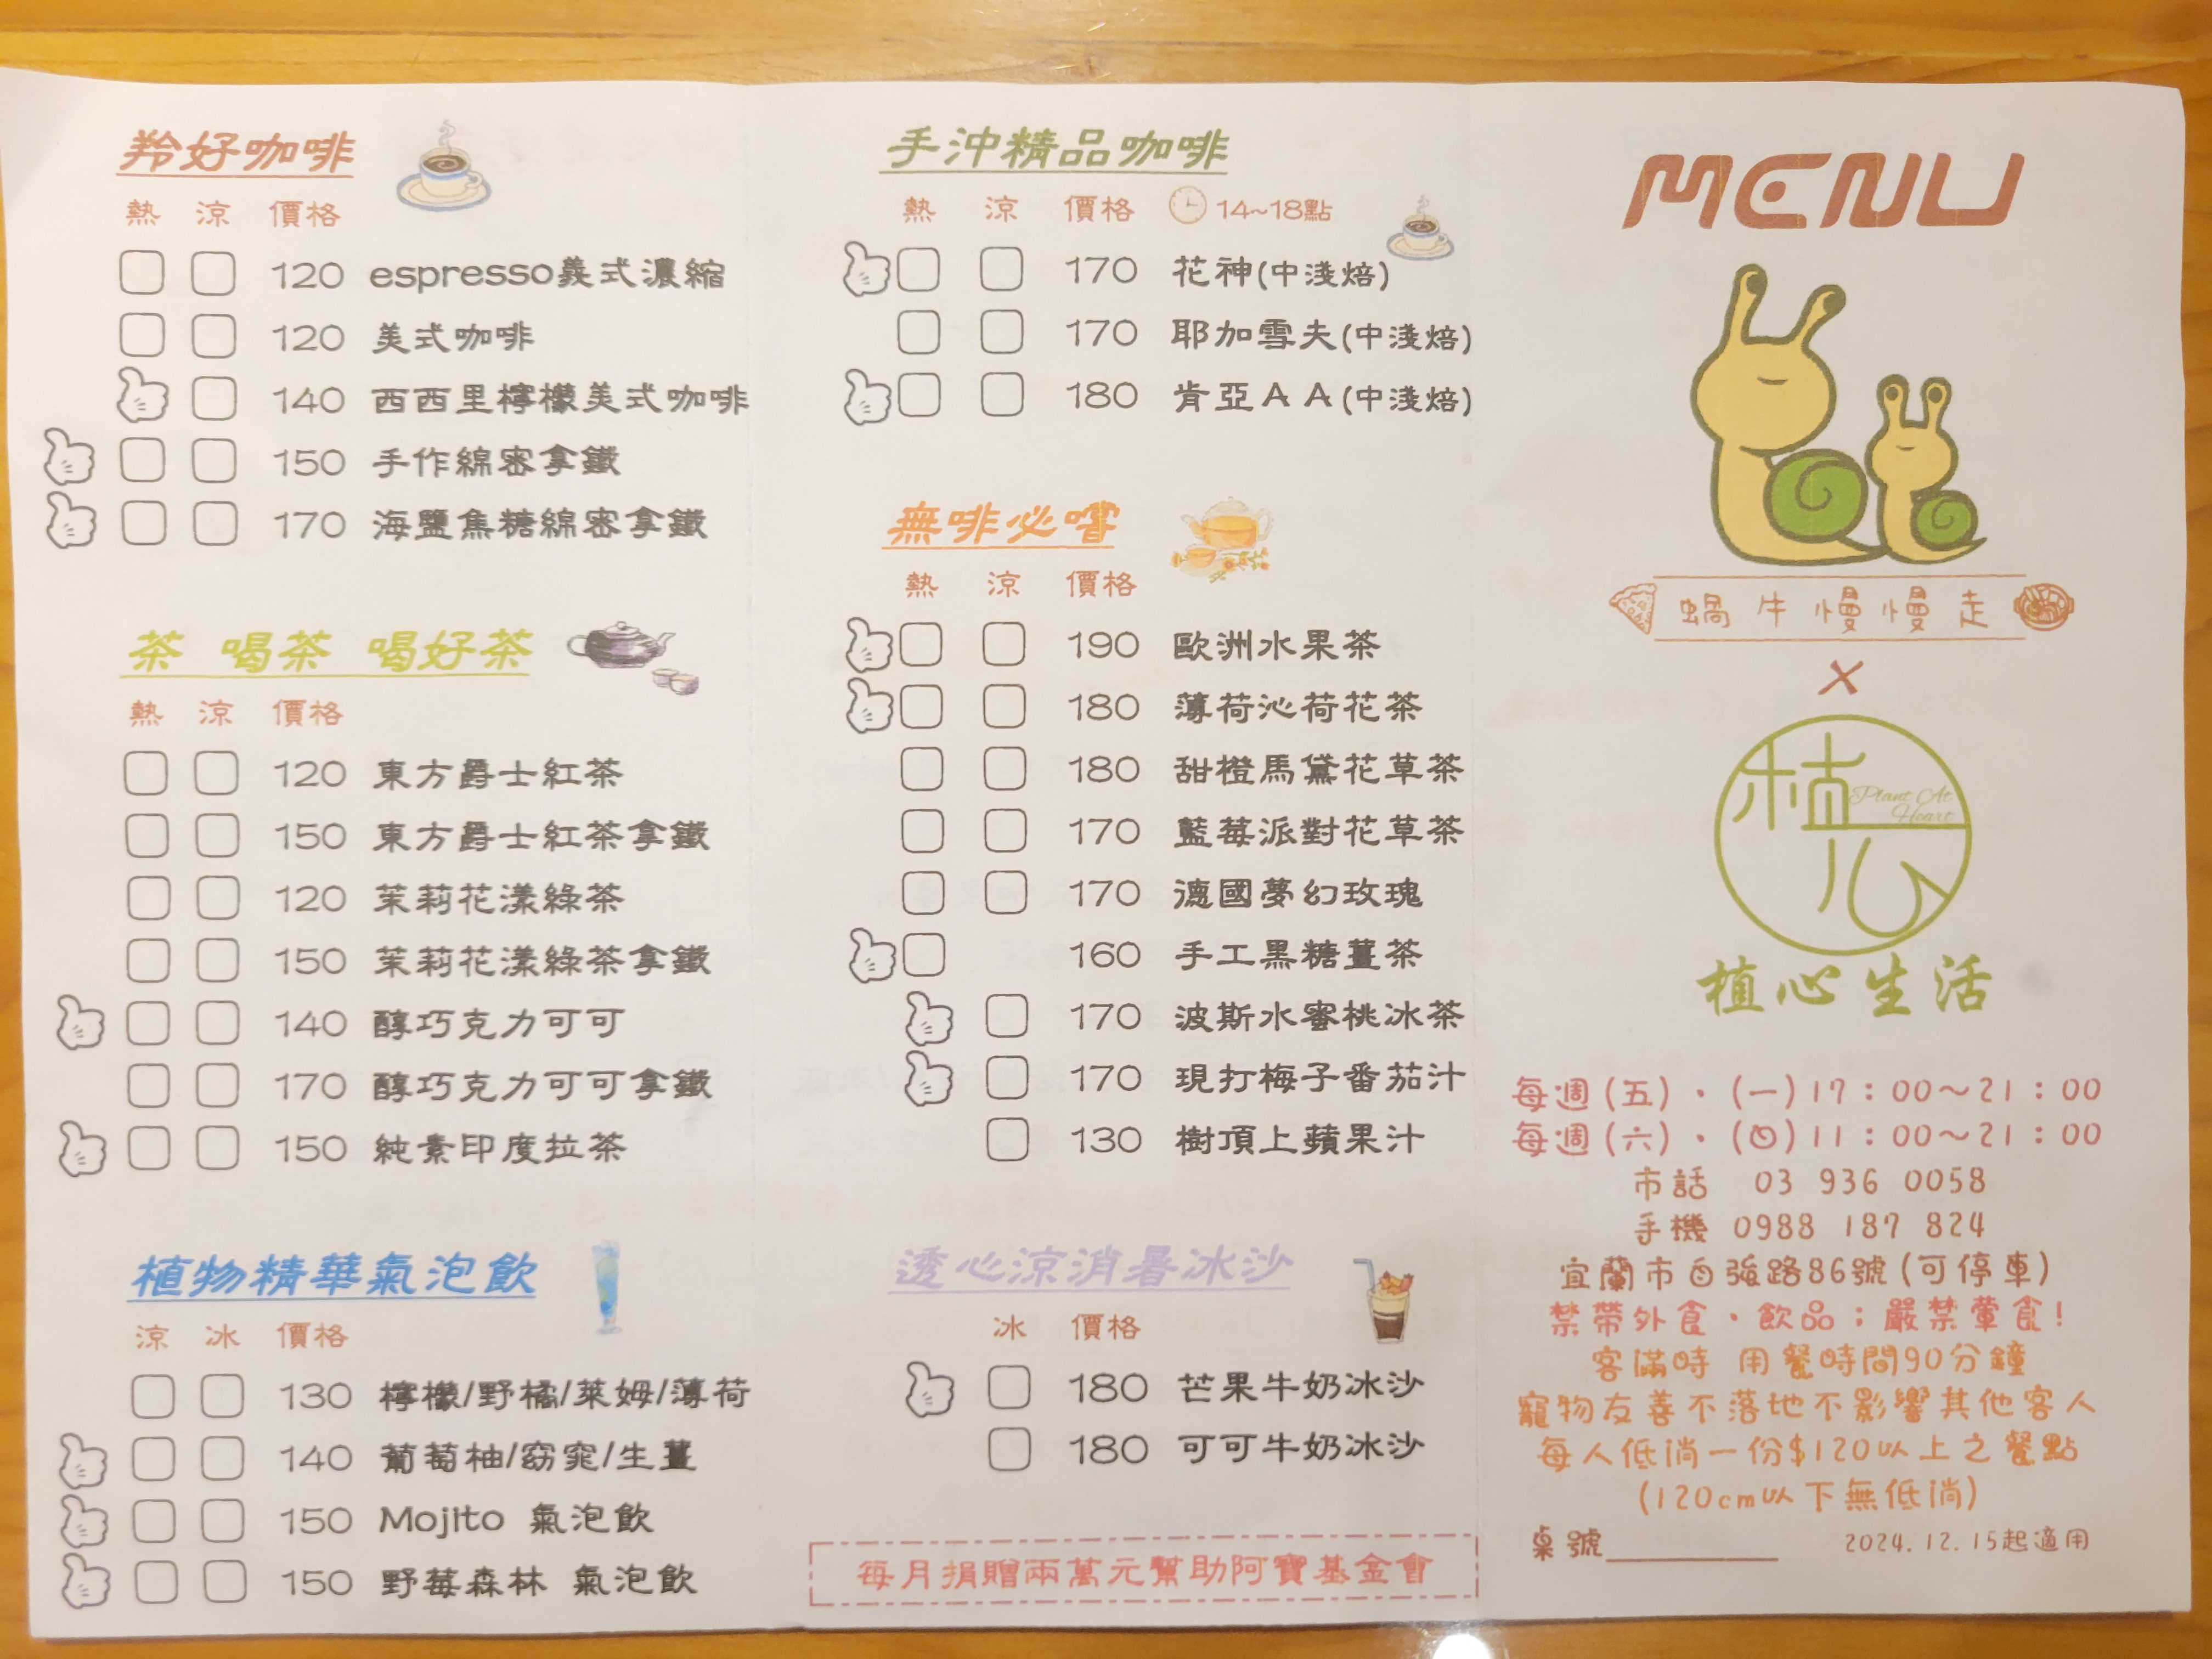 羚好咖啡
熱 涼 價格
120 espresso義式濃縮
120 美式咖啡
140 西西里檸檬美式咖啡
150 手作綿密拿鐵
170 海鹽焦糖綿密拿鐵
茶 喝茶 喝好茶
熱 涼 價格
120 東方爵士紅茶
150 東方爵士紅茶拿鐵
120 茉莉花漾綠茶
150 茉莉花漾綠茶拿鐵
140 醇巧克力可可
170 醇巧克力可可拿鐵
150 純素印度拉茶
植物精華氣泡飲
涼 冰 價格
130 檸檬/野橘/萊姆/薄荷
140 葡萄柚/窈窕/生薑
150 Mojito 氣泡飲
150 野莓森林 氣泡飲
手沖精品咖啡
熱 涼 價格 14~18點
170 花神(中淺焙)
170 耶加雪夫(中淺焙)
180 肯亞ＡＡ(中淺焙)
無啡必嚐
熱 涼 價格
190 歐洲水果茶
180 薄荷沁荷花茶
180 甜橙馬黛花草茶
170 藍莓派對花草茶
170 德國夢幻玫瑰
160 手工黑糖薑茶
170 波斯水蜜桃冰茶
170 現打梅子番茄汁
130 樹頂上蘋果汁
透心涼消暑冰沙
冰 價格
180 芒果牛奶冰沙
180 可可牛奶冰沙
每月捐贈兩萬元幫助阿寶基金會
MENU
蝸牛慢慢走
×
植心
Plant At
Heart
植心生活
每週(五)・(一)17：00～21：00
每週(六)・(四)11：00～21：00
市話 03 936 0058
手機 0988 187 824
宜蘭市自強路86號(可停車)
禁帶外食・飲品；嚴禁葷食!
客滿時 用餐時間90分鐘
寵物友善不落地不影響其他客人
每人低消一份$120以上之餐點
(120cm以下無低消)
桌號 2024.12.15起適用